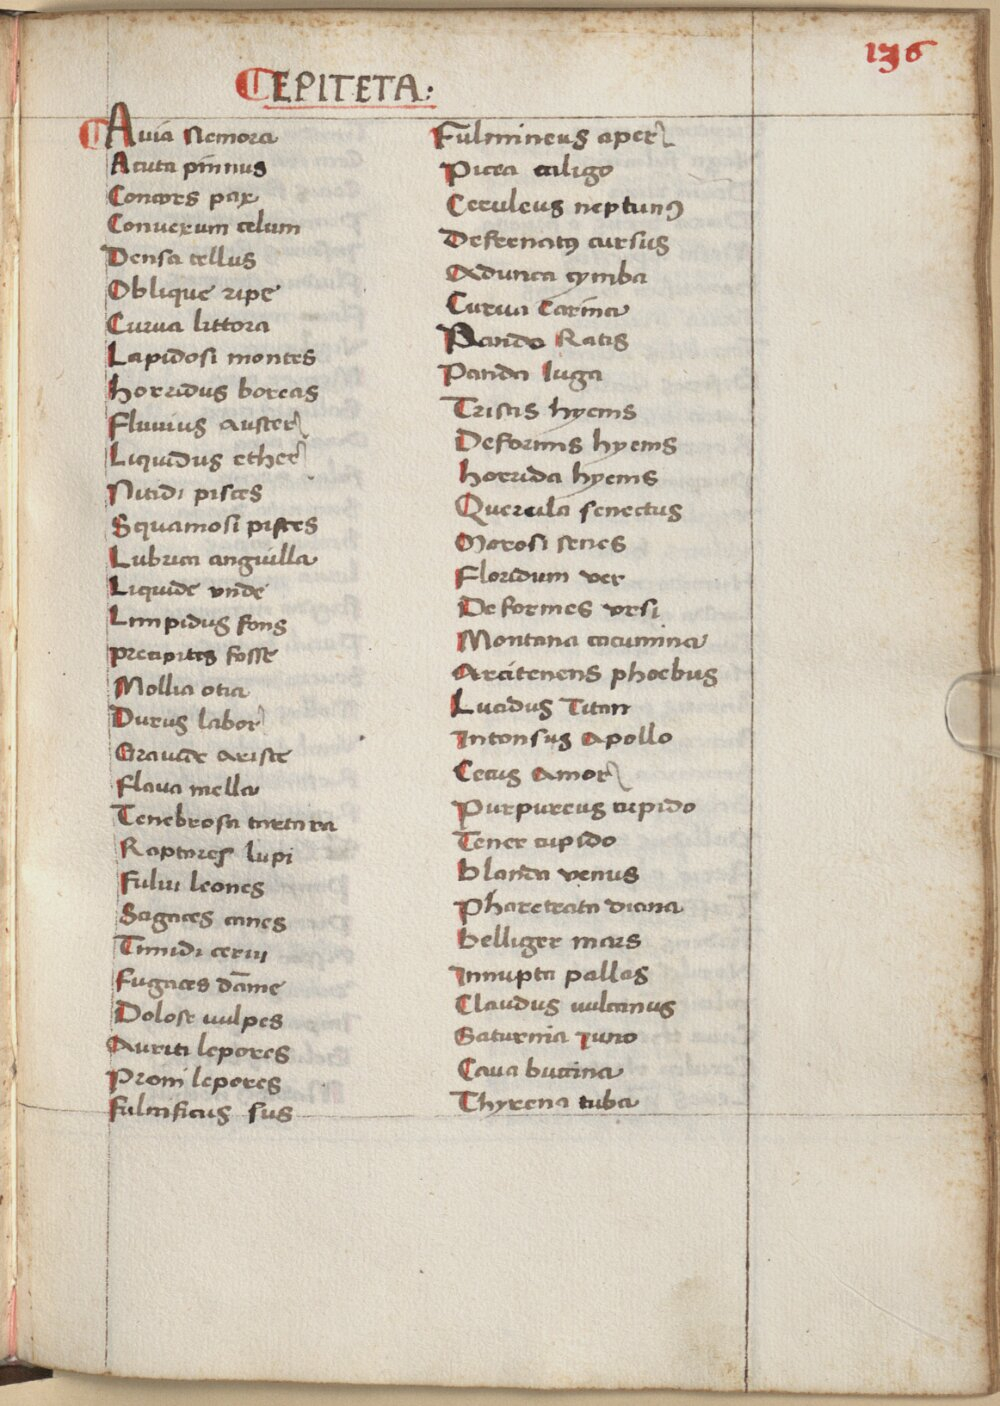 136
EPITETA:
Auia Nemora
Acuta pinnus
Concors pax
Conuexum celum
Densa tellus
Oblique ripe
Curua littora
Lapidosi montes
horridus boreas
Fluuius auster
Liquidus ether
Nitidi pisces
Squamosi pisces
Lubrica anguilla
Liquide vnde
Limpidus fons
precipites fosse
Mollia otia
Durus labor
Grauide ariste
Flaua mella
Tenebrosa tartara
Raptores lupi
Fului leones
Sagaces canes
Timidi cerui
Fugaces dame
Dolose uulpes
Auriti lepores
Proni lepores
fulmificus sus
Fulmineus aper
Picea caligo
Ceruleus neptunꝰ
Defrenatꝰ cursus
Adunca cymba
Curua Carina
Pando Ratis
Panda Iuga
Tristis hyems
Deformis hyems
horrida hyems
Querula senectus
Morosi senes
Floridum ver
Deformes vrsi
Montana cacumina
Arcitenens phoebus
Lucidus Titan
Intonsus Apollo
Cecus Amor
Purpureus cupido
Tener cupido
blanda venus
Pharetrata diana
belliger mars
Innupta pallas
Claudus uulcanus
Saturnia Iuno
Caua buccina
Thyrena tuba